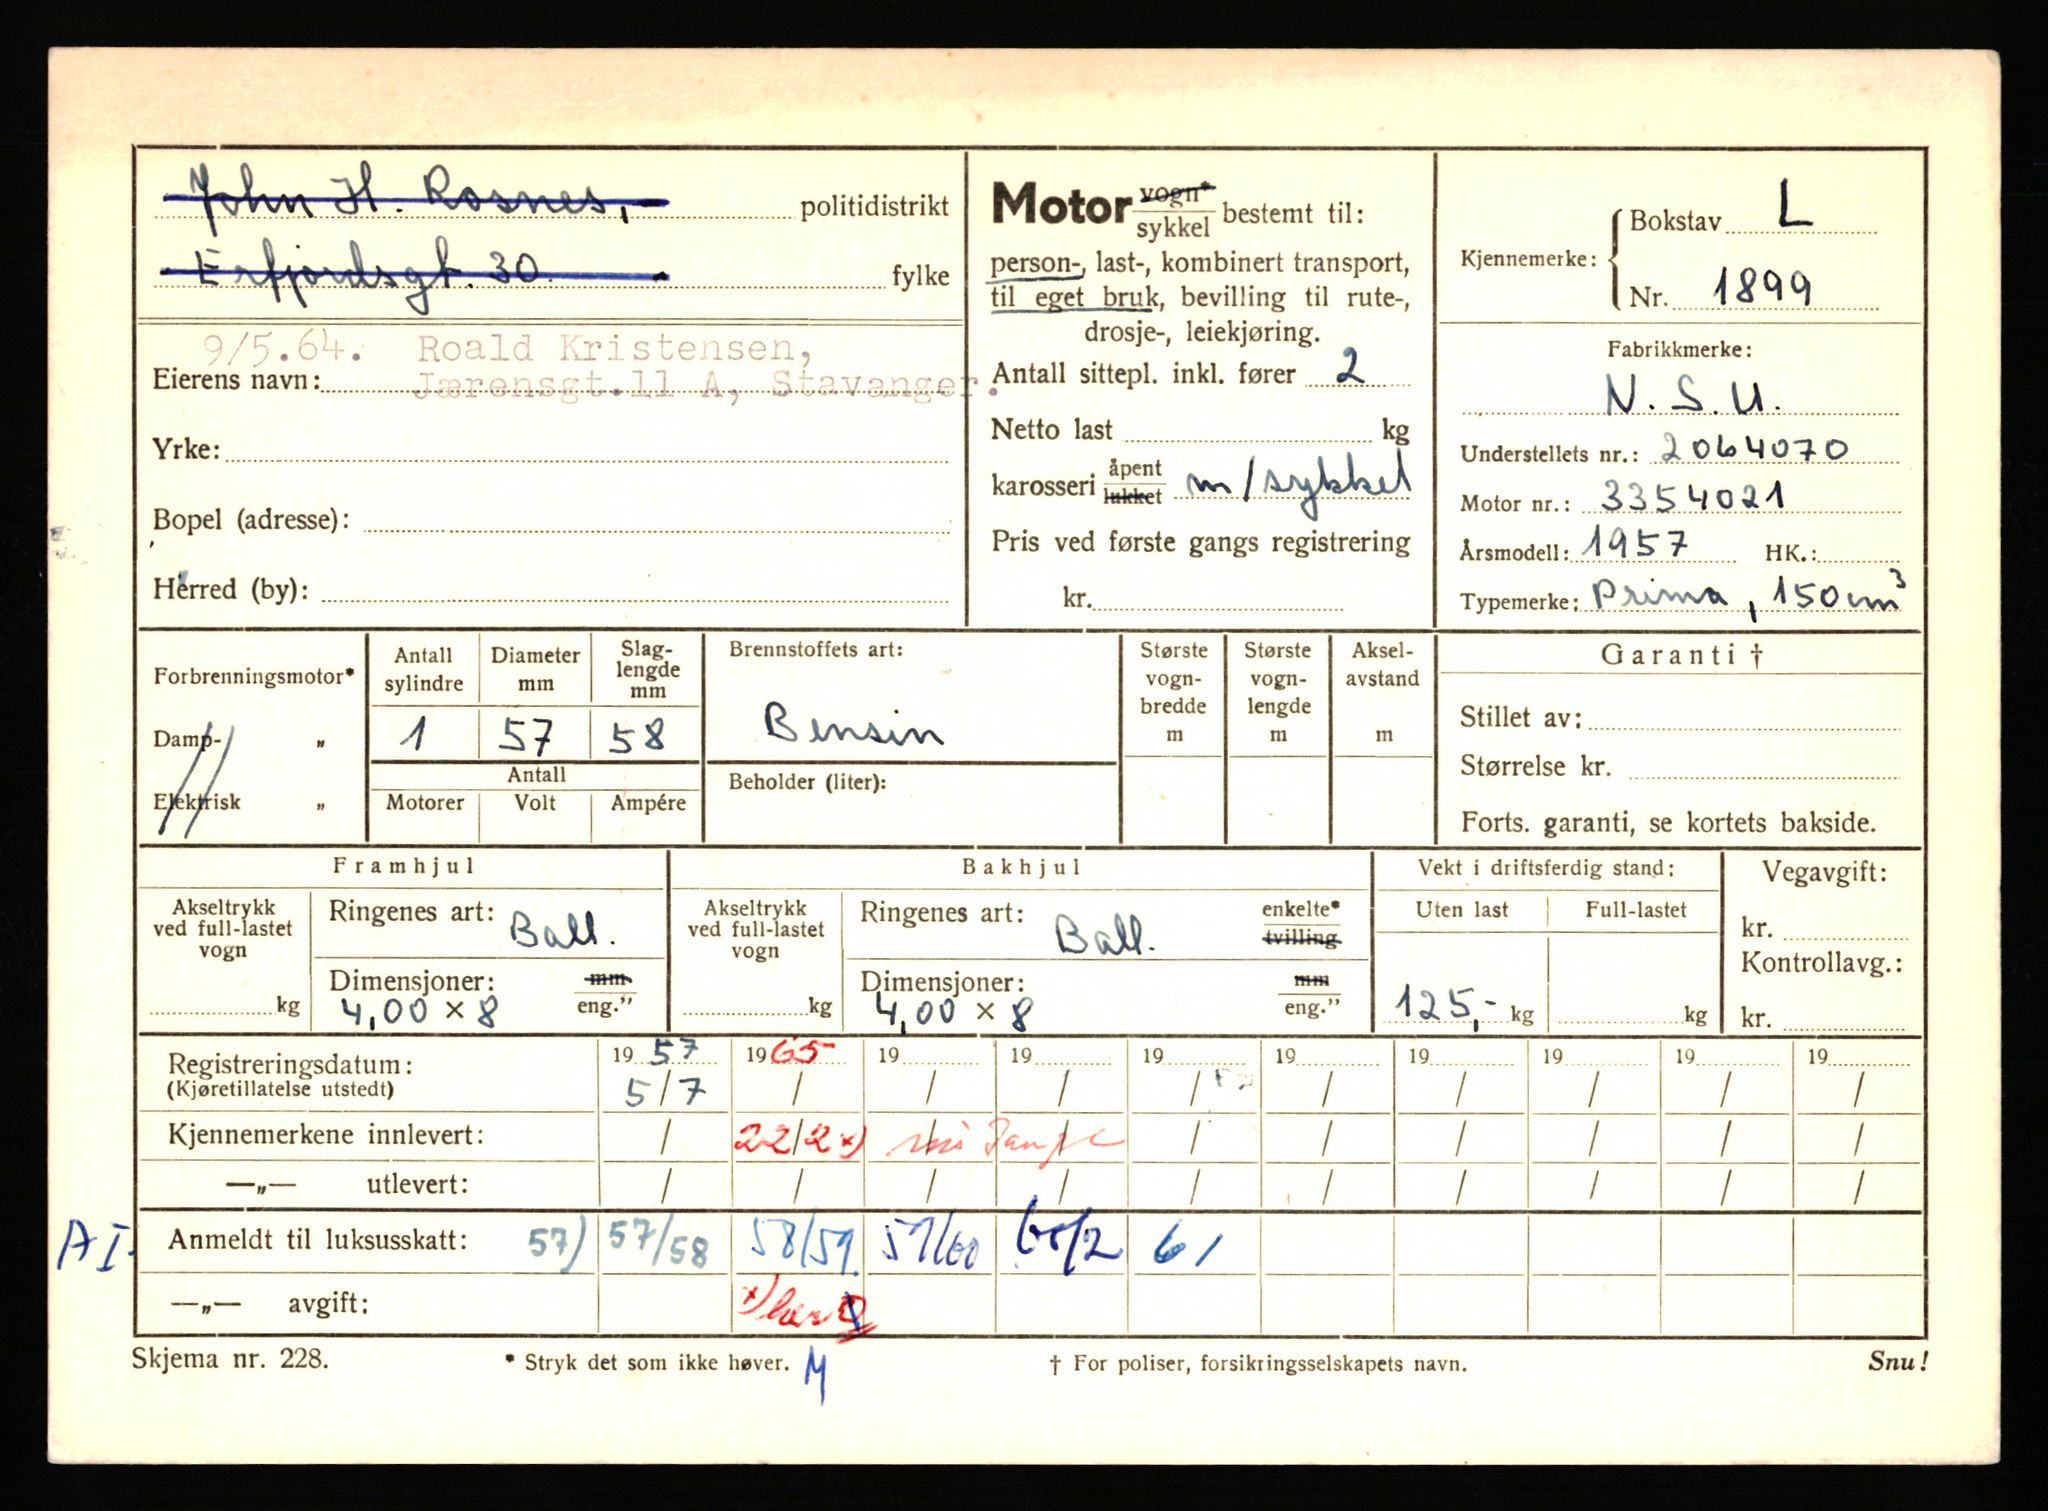 John H. Rosnes, politidistrikt
Erfjordsgt. 30. fylke
9/5.64. Roald Kristensen,
Eierens navn: Jærensgt.11 A, Stavanger.
Yrke:
Bopel (adresse):
Herred (by):
Motor vogn* sykkel bestemt til:
person-, last-, kombinert transport,
til eget bruk, bevilling til rute-,
drosje-, leiekjøring.
Antall sittepl. inkl. fører 2
Netto last kg
karosseri åpent lukket m/sykkel
Pris ved første gangs registrering
kr.
Kjennemerke: Bokstav L
Nr. 1899
Fabrikkmerke:
N.S.U.
Understellets nr.: 2064070
Motor nr.: 3354021
Årsmodell: 1957 HK.:
Typemerke: Prima, 150 cm³
Forbrenningsmotor*
Damp- „
Elektrisk „
Antall sylindre Diameter mm Slag-lengde mm
1 57 58
Antall
Motorer Volt Ampére
Brennstoffets art:
Bensin
Beholder (liter):
Største vogn-bredde m
Største vogn-lengde m
Aksel-avstand m
Garanti †
Stillet av:
Størrelse kr.
Forts. garanti, se kortets bakside.
Framhjul
Akseltrykk ved full-lastet vogn kg
Ringenes art: Ball.
Dimensjoner: mm
4,00 x 8 eng.”
Bakhjul
Akseltrykk ved full-lastet vogn kg
Ringenes art: Ball. enkelte* tvilling
Dimensjoner: mm
4,00 x 8 eng.”
Vekt i driftsferdig stand:
Uten last Full-lastet
125,- kg kg
Vegavgift:
kr.
Kontrollavg.:
kr.
Registreringsdatum: 1957 1965 19 19 19 19 19 19 19 19
(Kjøretillatelse utstedt) 5/7 / / / / / / / / /
Kjennemerkene innlevert: / 22/2 x) / / / / / / / /
—„— utlevert: / / / / / / / / / /
AI. Anmeldt til luksusskatt: 57) 57/58 58/59. 59/60 60/2 61
—„— avgift: x)
Skjema nr. 228. * Stryk det som ikke høver. M † For poliser, forsikringsselskapets navn. Snu!